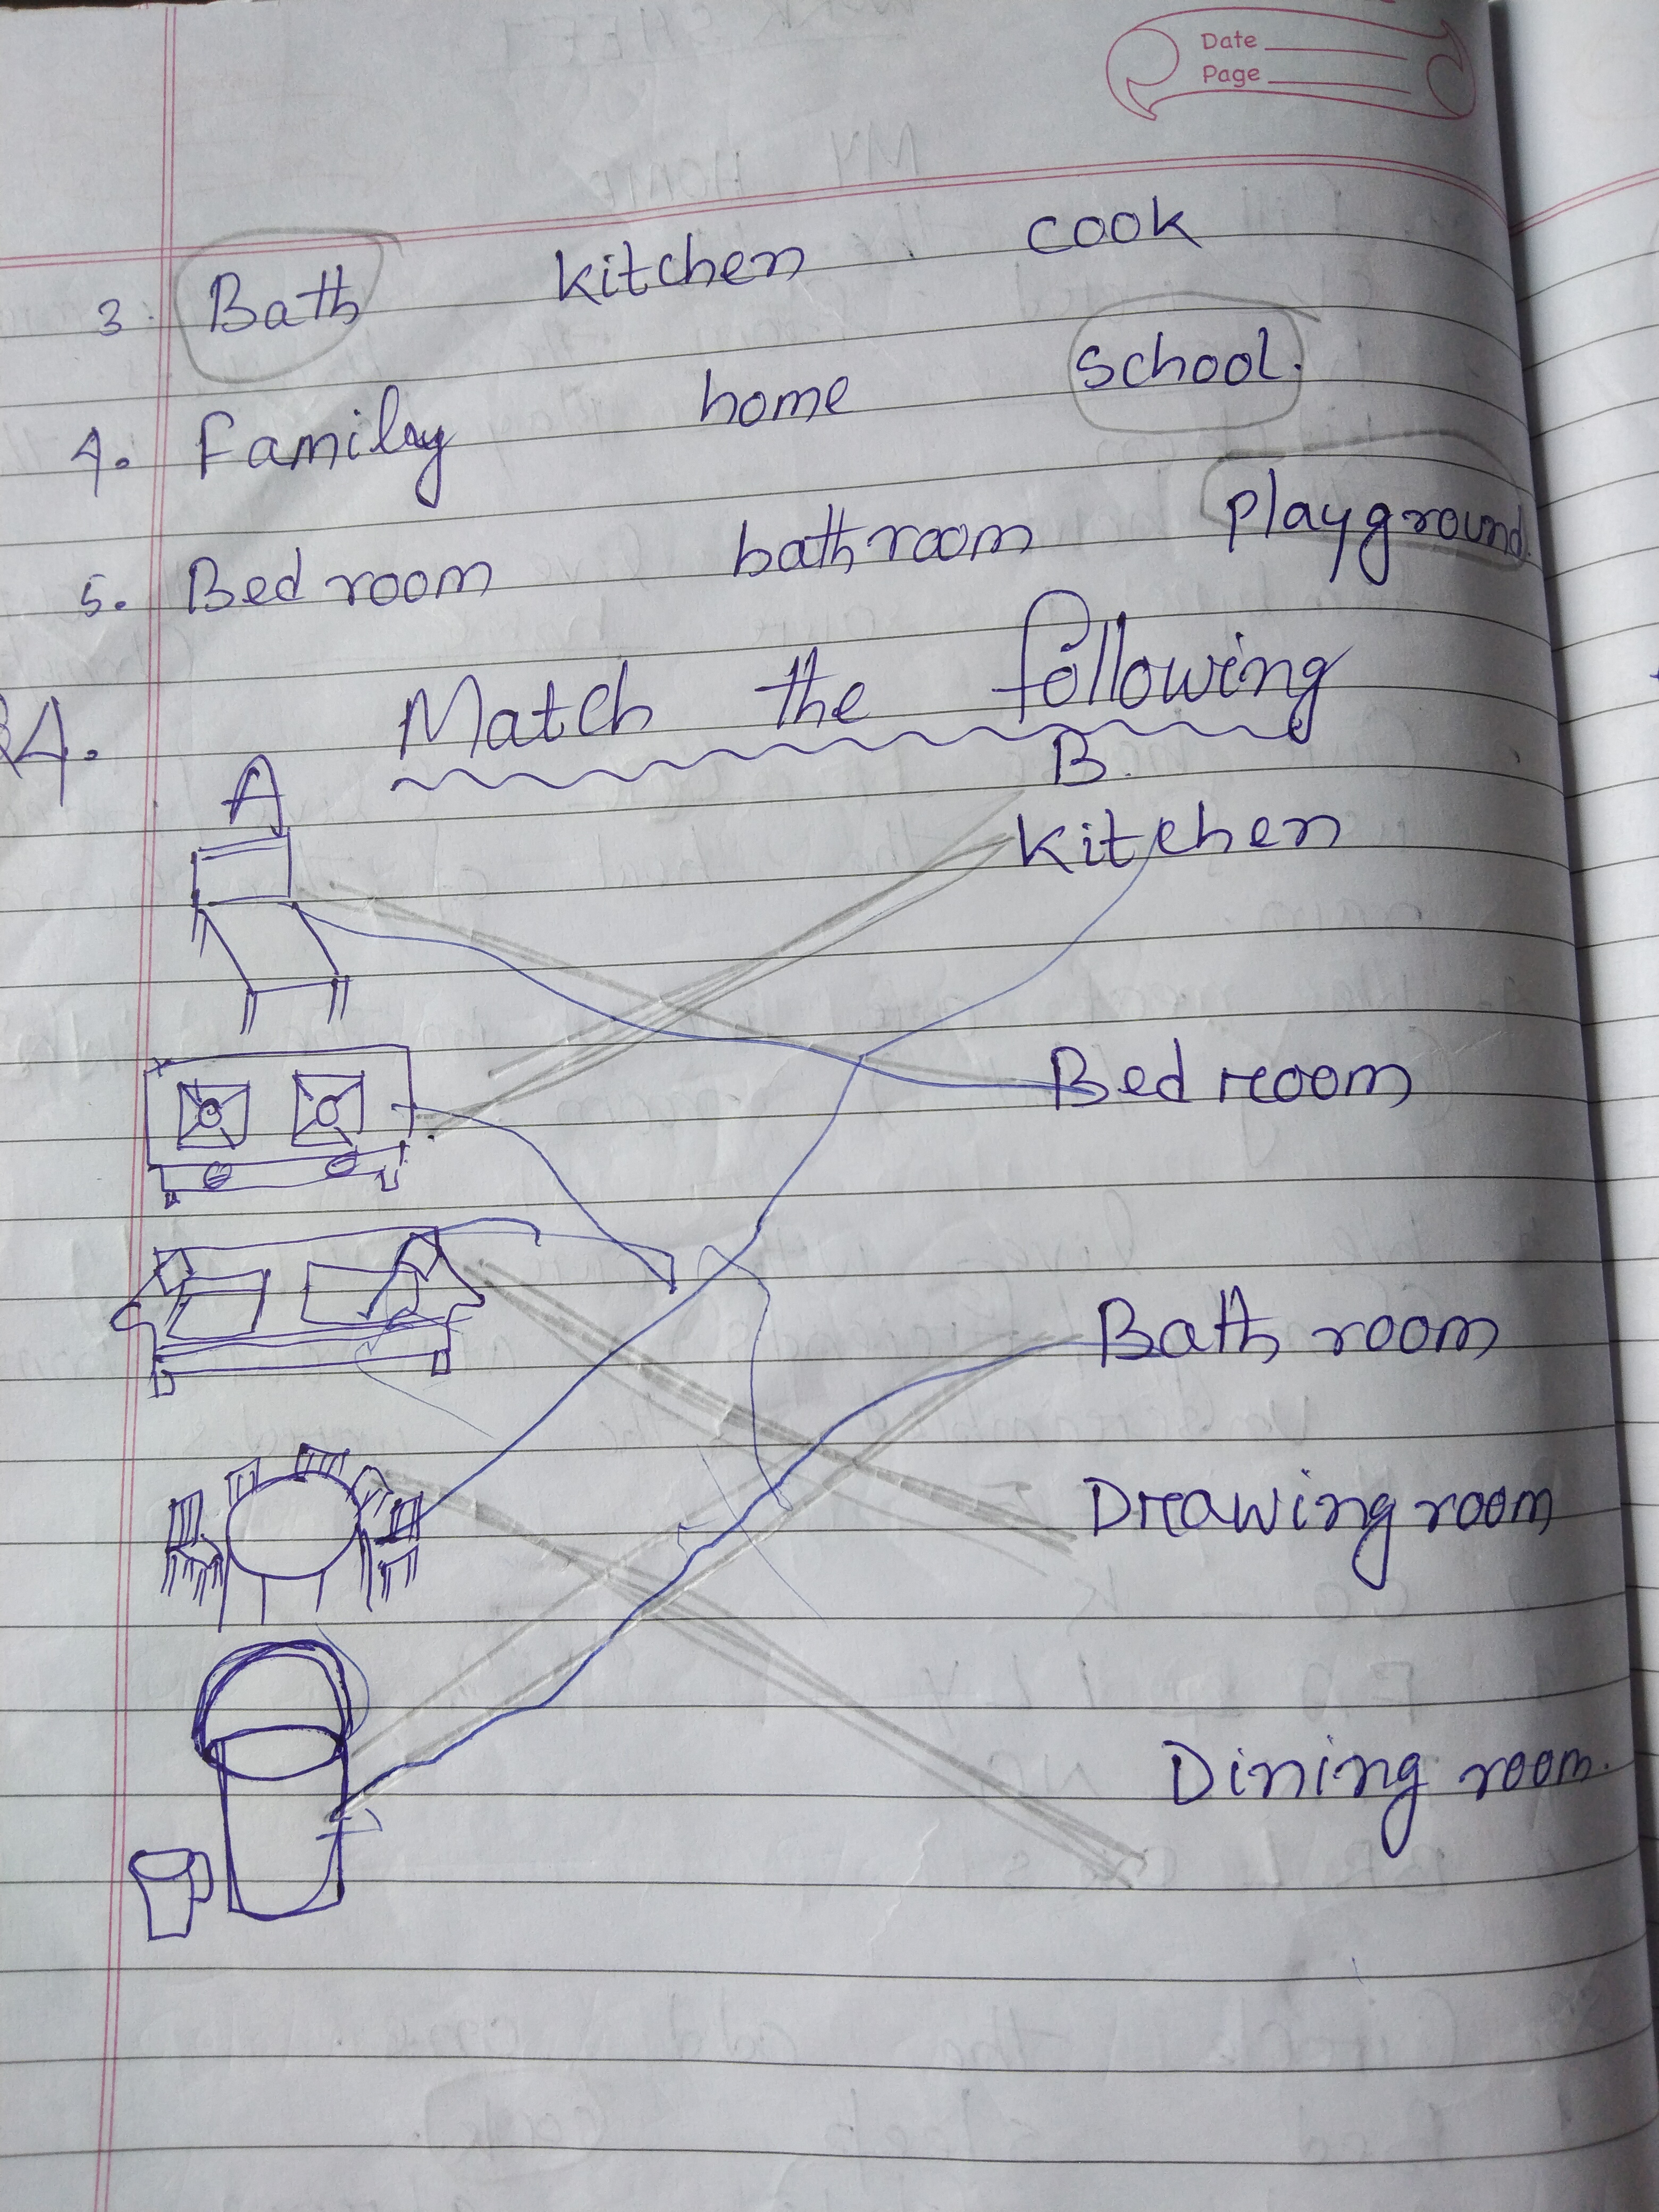 Date
Page
3. Bath kitchen cook
4. Family home school.
5. Bed room bathroom playground.
4. Match the following
A B.
kitchen
Bed room
Bath room
Drawing room
Dining room.